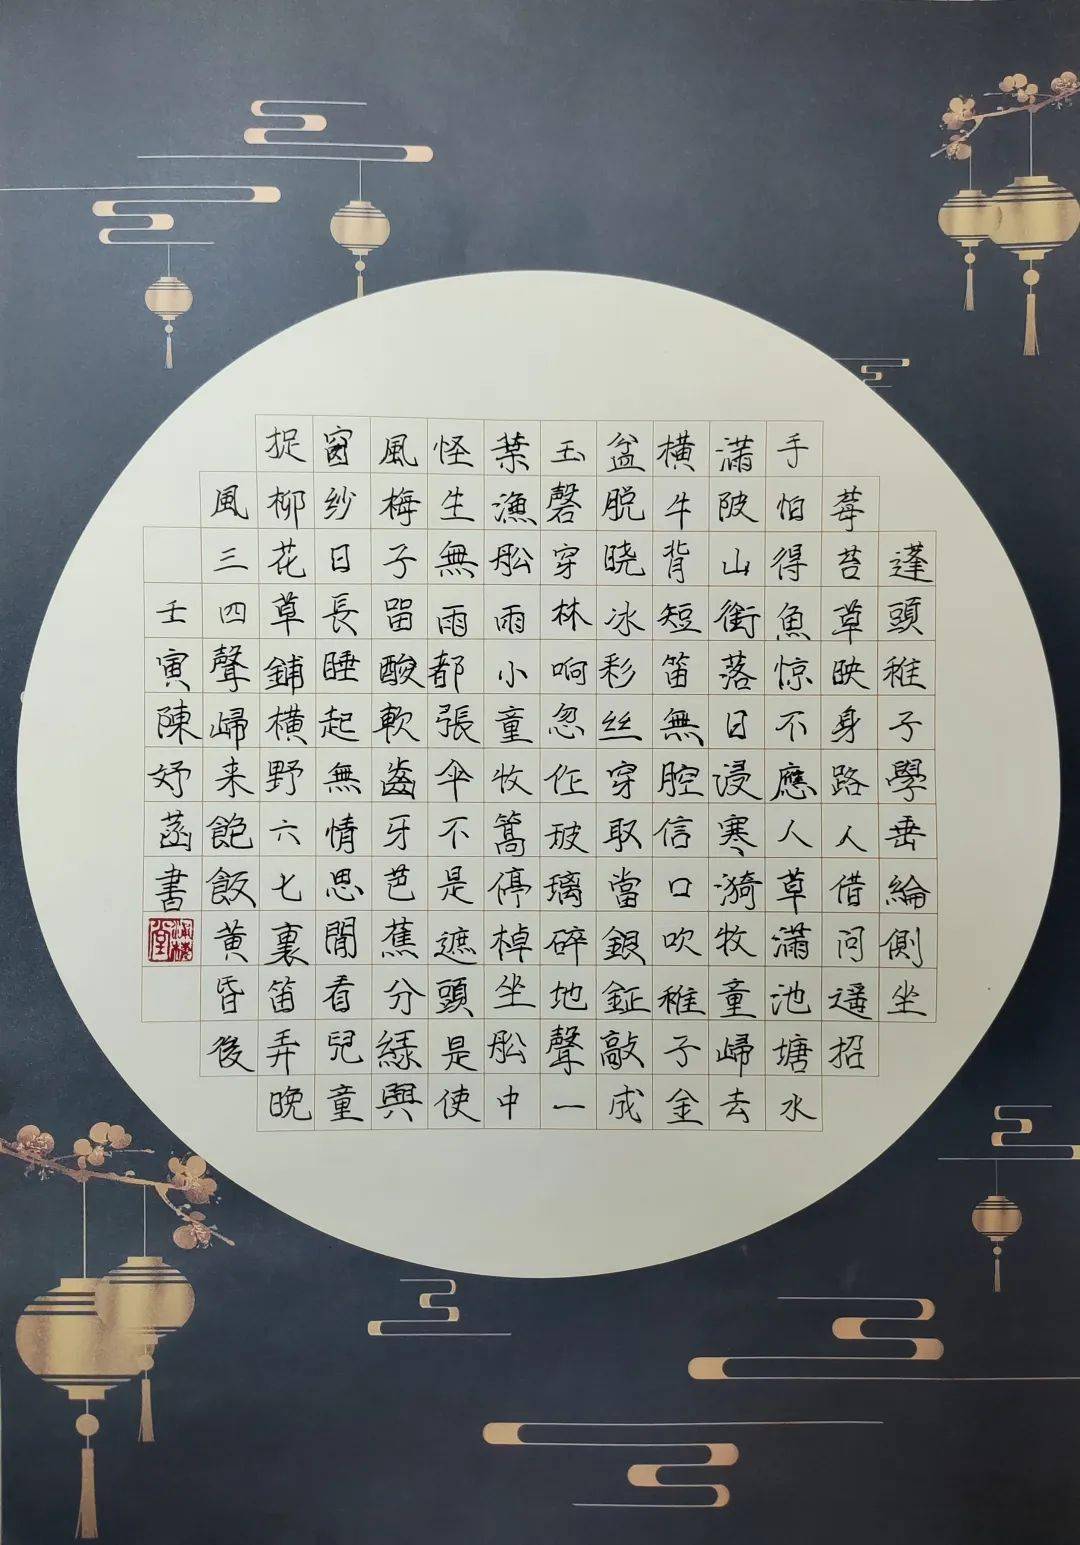 蓬頭稚子學垂綸側坐
莓苔草映身路人借問遥招
手怕得魚惊不應人草滿池塘水
滿陂山銜落日浸寒漪牧童歸去
横牛背短笛無腔信口吹稚子金
盆脱晓冰彩丝穿取當銀鉦敲成
玉磬穿林响忽作玻璃碎地聲一
葉漁舩雨小童牧篙停棹坐舩中
怪生無雨都張伞不是遮頭是使
風梅子留酸軟齒牙芭蕉分緑與
窗紗日長睡起無情思閒看兒童
捉柳花草鋪横野六七裏笛弄晚
風三四聲歸来飽飯黄昏後
壬寅陳妤菡書